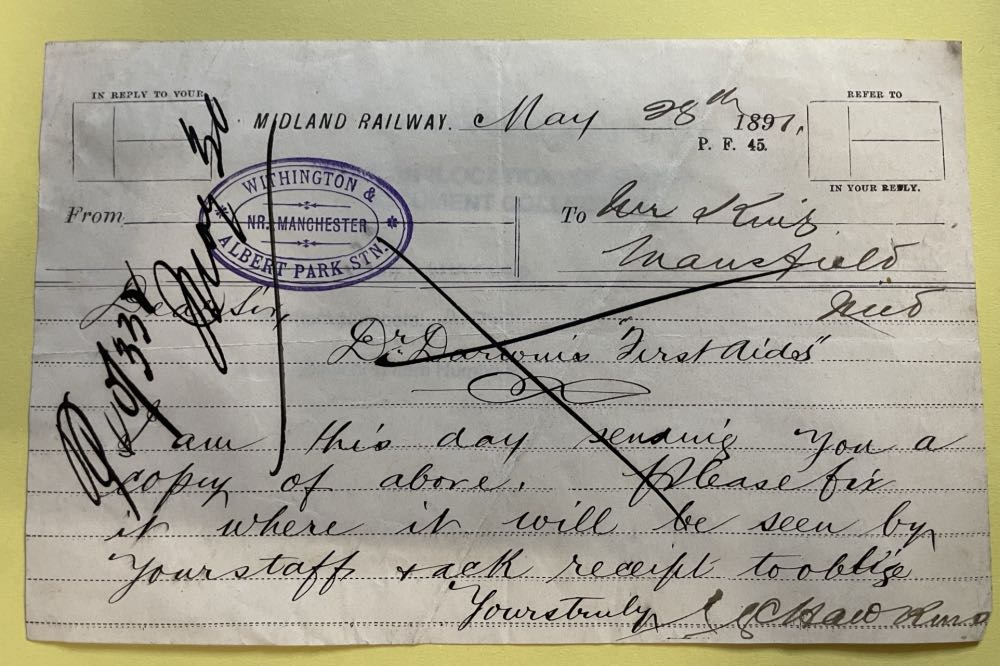 IN REPLY TO YOUR
REFER TO
MIDLAND RAILWAY. May 28th 1897.
P. F. 45.
IN YOUR REPLY.
WITHINGTON &
NR. MANCHESTER
ALBERT PARK STN.
From
To Mr
Mansfield
Mid
Dear Sir,
Dr. Darwin's "First Aids"
I am this day sending you a
copy of above. Please fix
it where it will be seen by
your staff & ack receipt to oblige
Yours truly
May 30